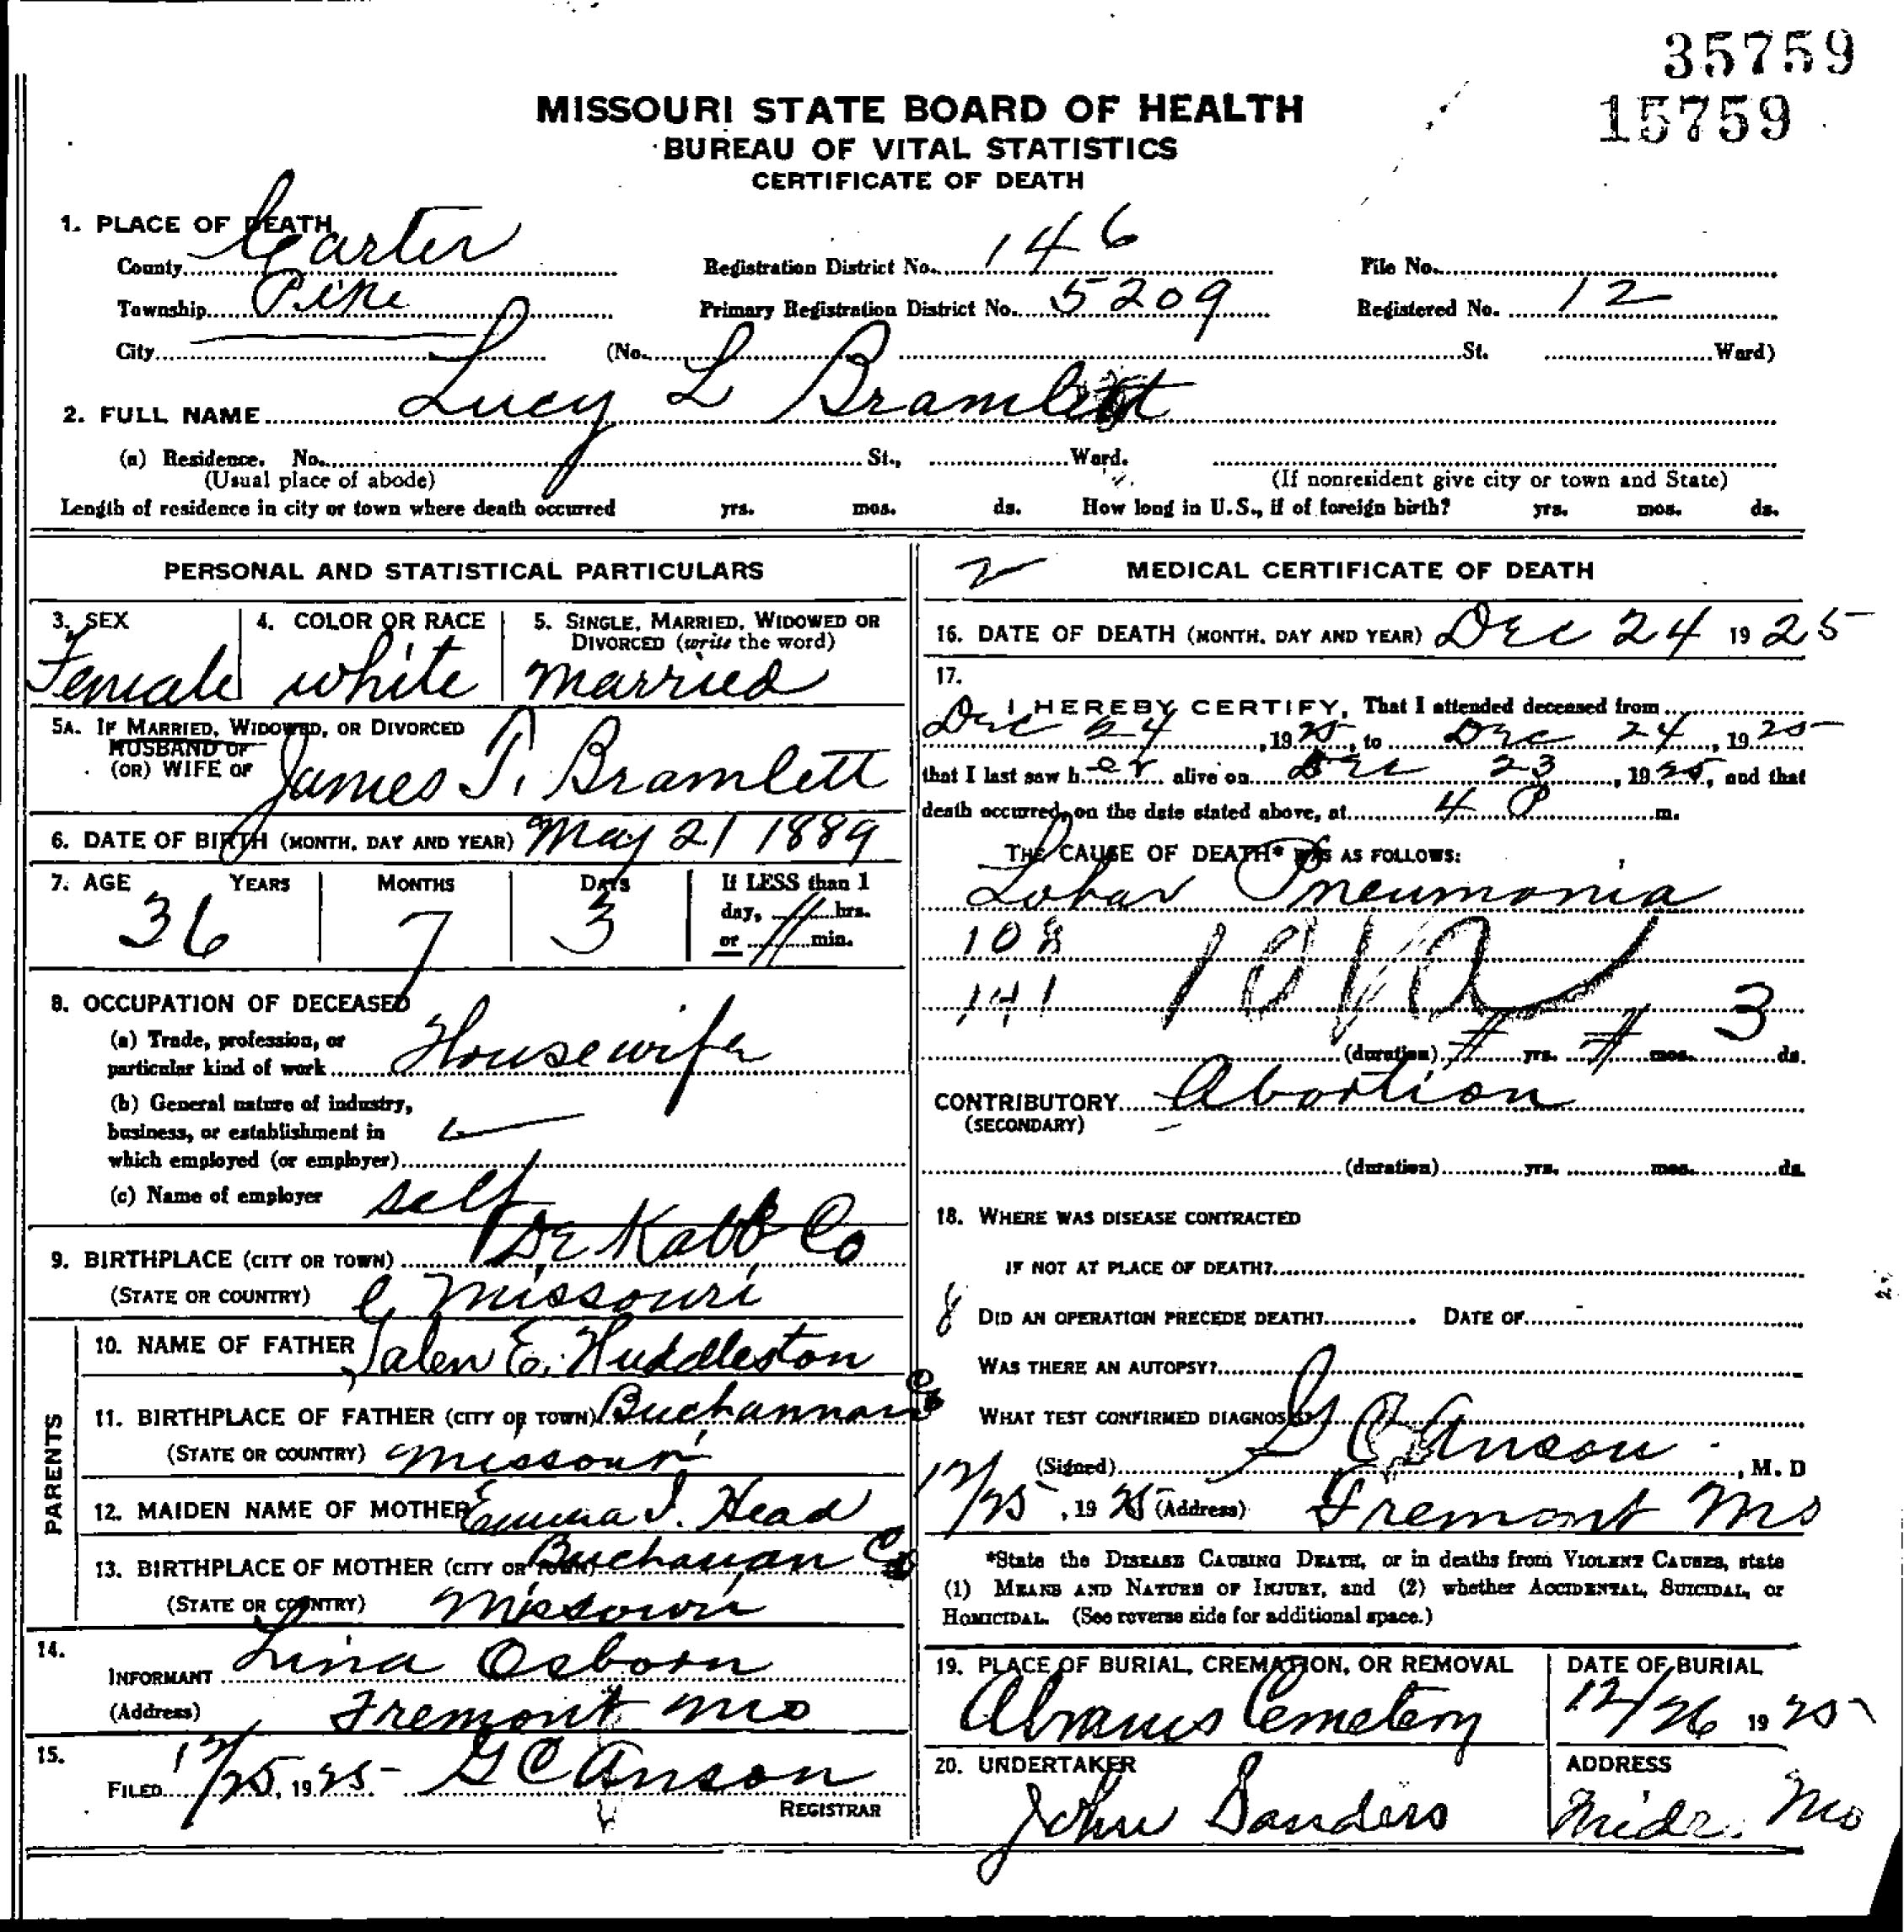 35759
15759
MISSOURI STATE BOARD OF HEALTH
BUREAU OF VITAL STATISTICS
CERTIFICATE OF DEATH
1. PLACE OF DEATH
County Carter Registration District No. 146 File No.
Township Pike Primary Registration District No. 5209 Registered No. 12
City (No. St. Ward)
2. FULL NAME Lucy L Bramlett
(a) Residence. No. St., Ward.
(Usual place of abode) (If nonresident give city or town and State)
Length of residence in city or town where death occurred yrs. mos. ds. How long in U.S., if of foreign birth? yrs. mos. ds.
PERSONAL AND STATISTICAL PARTICULARS
3. SEX 4. COLOR OR RACE 5. SINGLE, MARRIED, WIDOWED OR
DIVORCED (write the word)
Female white married
5A. IF MARRIED, WIDOWED, OR DIVORCED
HUSBAND OF
(OR) WIFE OF James T. Bramlett
6. DATE OF BIRTH (MONTH, DAY AND YEAR) May 21 1889
7. AGE YEARS MONTHS DAYS If LESS than 1
day, hrs.
36 7 3 or min.
8. OCCUPATION OF DECEASED
(a) Trade, profession, or
particular kind of work Housewife
(b) General nature of industry,
business, or establishment in
which employed (or employer)
(c) Name of employer self
9. BIRTHPLACE (CITY OR TOWN) De Kalb Co
(STATE OR COUNTRY) Missouri
PARENTS
10. NAME OF FATHER Jalen E. Huddleston
11. BIRTHPLACE OF FATHER (CITY OR TOWN) Buchannan Co
(STATE OR COUNTRY) Missouri
12. MAIDEN NAME OF MOTHER Emma I. Head
13. BIRTHPLACE OF MOTHER (CITY OR TOWN) Buchanan Co
(STATE OR COUNTRY) Missouri
14.
INFORMANT Lina Osborn
(Address) Fremont Mo
15.
FILED 12/25, 1925 G C Anson
REGISTRAR
2 MEDICAL CERTIFICATE OF DEATH
16. DATE OF DEATH (MONTH, DAY AND YEAR) Dec 24 1925
17.
I HEREBY CERTIFY, That I attended deceased from
Dec 24, 1925, to Dec 24, 1925
that I last saw her alive on Dec 23, 1925, and that
death occurred, on the date stated above, at 4 P m.
THE CAUSE OF DEATH* WAS AS FOLLOWS:
Lobar Pneumonia
108
141
(duration) yrs. mos. 3 ds.
CONTRIBUTORY Abortion
(SECONDARY)
(duration) yrs. mos. ds.
18. WHERE WAS DISEASE CONTRACTED
IF NOT AT PLACE OF DEATH?
8 DID AN OPERATION PRECEDE DEATH? DATE OF
WAS THERE AN AUTOPSY?
WHAT TEST CONFIRMED DIAGNOSIS?
(Signed) G C Anson, M. D
12/25, 1925 (Address) Fremont Mo
*State the DISEASE CAUSING DEATH, or in deaths from VIOLENT CAUSES, state
(1) MEANS AND NATURE OF INJURY, and (2) whether ACCIDENTAL, SUICIDAL, or
HOMICIDAL. (See reverse side for additional space.)
19. PLACE OF BURIAL, CREMATION, OR REMOVAL DATE OF BURIAL
Abrams Cemetery 12/26 1925
20. UNDERTAKER ADDRESS
John Sanders Mo